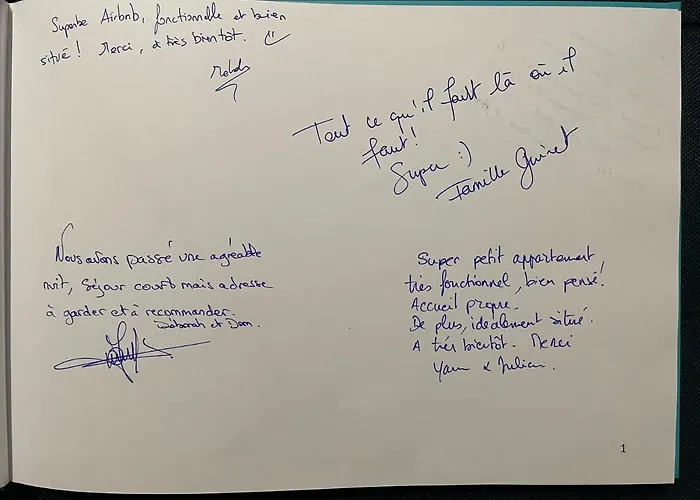 Superbe Airbnb, fonctionnelle et bien
situé ! Merci, à très bientôt.
Tout ce qu'il faut là où il
faut !
Super :)
Famille
Nous avons passé une agréable
nuit, séjour court mais adresse
à garder et à recommander.
Déborah et Dom.
Super petit appartement
très fonctionnel, bien pensé !
Accueil
De plus, idéalement situé.
A très bientôt. Merci
Yann & Julien.
1